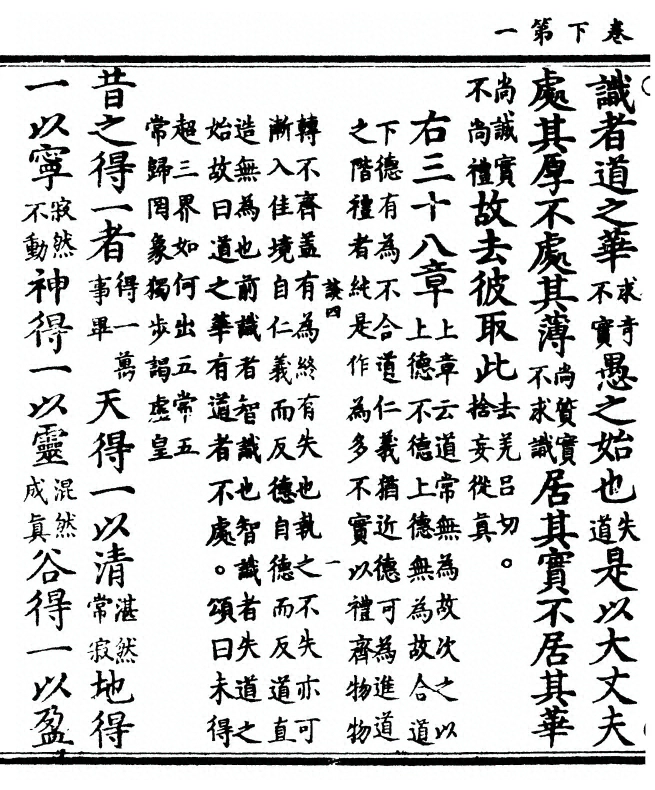 卷下第一
識者道之華求奇不實愚之始也失道是以大丈夫
處其厚不處其薄尚質實不求識居其實不居其華
尚誠實不尚禮故去彼取此去羌呂切。捨妄從真
右三十八章上章云道常無為故次之以上德不德上德無為故合道
下德有為不合道仁義猶近德可為進道
之階禮者純是作為多不實以禮齊物物
四 一
轉不齊蓋有為終有失也執之不失亦可
漸入佳境自仁義而反德自德而反道直
造無為也前識者智識也智識者失道之
始故曰道之華有道者不處。頌曰未得
超三界如何出五常五
常歸罔象獨步謁虛皇
昔之得一者得一萬事畢天得一以清湛然常寂地得
一以寧寂然不動神得一以靈混然成真谷得一以盈